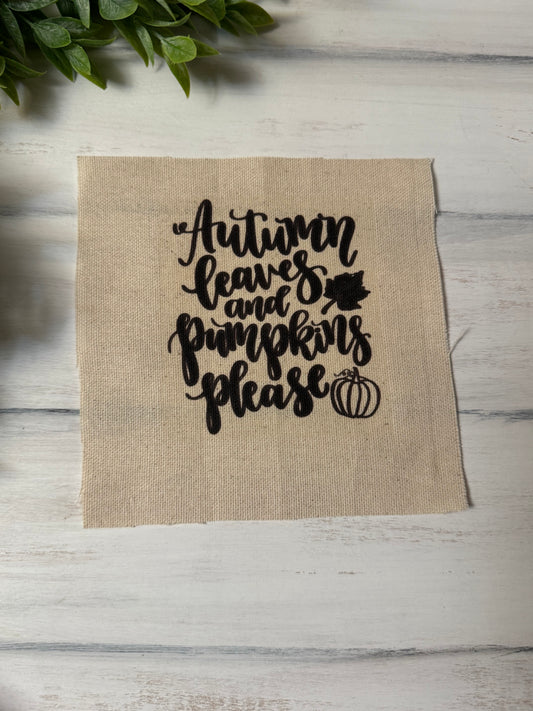 Autumn
leaves
and
pumpkins
please